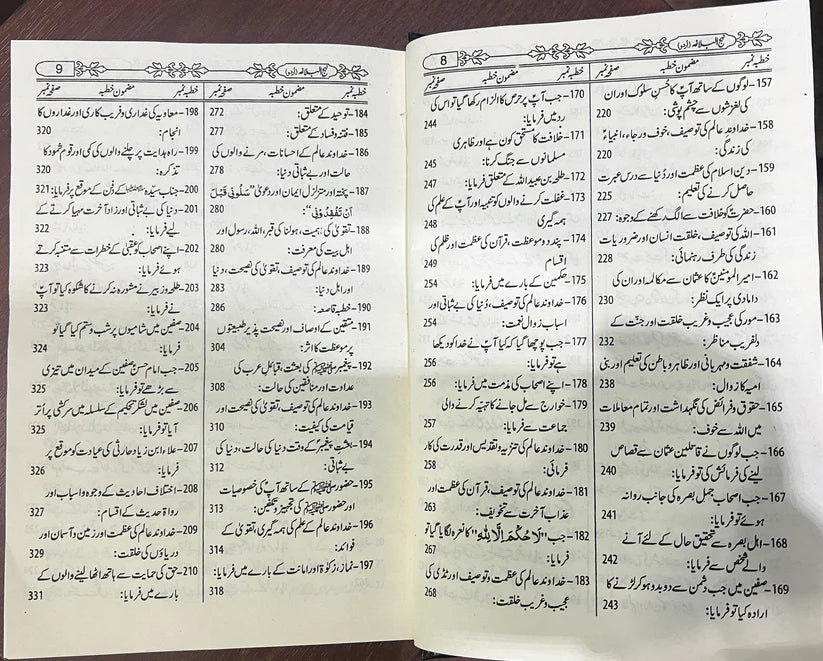 8
نہج البلاغہ (اردو)
خطبہ نمبر مضمون خطبہ صفحہ نمبر
خطبہ نمبر مضمون خطبہ صفحہ نمبر
157– لوگوں کے ساتھ آپؑ کا حُسنِ سلوک اور ان
کی لغزشوں سے چشم پوشی: 220
158– خداوند عالم کی توصیف، خوف ورجاء، انبیاءؑ
کی زندگی: 220
159– دین اسلام کی عظمت اور دُنیا سے درسِ عبرت
حاصل کرنے کی تعلیم: 225
160– حضرتؑ کو خلافت سے الگ رکھنے کے وجوہ: 227
161– اللہ کی توصیف، خلقت انسان اور ضروریات
زندگی کی طرف رہنمائی: 228
162– امیر المومنینؑ کا عثمان سے مکالمہ اور ان کی
دامادی پر ایک نظر: 230
163– مور کی عجیب وغریب خلقت اور جنّت کے
دلفریب مناظر: 232
164– شفقت ومہربانی اور ظاہر وباطن کی تعلیم اور بنی
امیہ کا زوال: 238
165– حقوق وفرائض کی نگہداشت اور تمام معاملات
میں اللہ سے خوف: 239
166– جب لوگوں نے قاتلین عثمان سے قصاص
لینے کی فرمائش کی تو فرمایا: 240
167– جب اصحاب جمل بصرہ کی جانب روانہ
ہوئے تو فرمایا: 241
168– اہل بصرہ سے تحقیق حال کے لئے آنے
والے شخص سے فرمایا: 242
169– صفین میں جب دشمن سے دوبدو ہوکر لڑنے کا
ارادہ کیا تو فرمایا: 243
170– جب آپؑ پر حرص کا الزام رکھا گیا تو اس کی
رد میں فرمایا: 244
171– خلافت کا مستحق کون ہے اور ظاہری
مسلمانوں سے جنگ کرنا: 245
172– طلحہ بن عبید اللہ کے متعلق فرمایا: 247
173– غفلت کرنے والوں کو تنبیہ اور آپؑ کے علم کی
ہمہ گیری 248
174– پند وموعظت، قرآن کی عظمت اور ظلم کی
اقسام 249
175– حکمین کے بارے میں فرمایا: 254
176– خداوند عالم کی توصیف، دُنیا کی بے ثباتی اور
اسباب زوال نعمت: 254
177– جب پوچھا گیا کہ کیا آپؑ نے خدا کو دیکھا
ہے تو فرمایا: 256
178– اپنے اصحاب کی مذمت میں فرمایا: 256
179– خوارج سے مل جانے کا تہیّہ کرنے والی
جماعت سے فرمایا: 257
180– خداوند عالم کی تنزیہ وتقدیس اور قدرت کی کار
فرمائی: 258
181– خداوند عالم کی توصیف، قرآن کی عظمت اور
عذاب آخرت سے تخالیف: 263
182– جب ”لَا حُکْمَ اِلَّا لِلّٰہِ“ کا نعرہ لگایا گیا تو
فرمایا: 267
183– خداوند عالم کی عظمت وتوصیف اور ٹڈی کی
عجیب وغریب خلقت: 268
9
نہج البلاغہ (اردو)
خطبہ نمبر مضمون خطبہ صفحہ نمبر
خطبہ نمبر مضمون خطبہ صفحہ نمبر
184– توحید کے متعلق: 272
185– فتنہ وفساد کے متعلق: 277
186– خداوند عالم کے احسانات، مرنے والوں کی
حالت اور بے ثباتی دنیا: 278
187– پختہ اور متزلزل ایمان اور دعویٰ ”سَلُوْنِی قَبْلَ
اَنْ تَفْقِدُوْنِی“: 280
188– تقویٰ کی اہمیت، ہولناکی قبر، اللہ، رسول اور
اہل بیت کی معرفت: 280
189– خداوند عالم کی توصیف، تقویٰ کی نصیحت، دنیا
اور اہل دنیا: 283
190– خطبہ قاصعہ: 286
191– متقین کے اوصاف اور نصیحت پذیر طبیعتوں
پر موعظت کا اثر: 304
192– پیغمبرؐ کی بعثت، قبائل عرب کی
عداوت اور منافقین کی حالت: 308
193– خداوند عالم کی توصیف، تقویٰ کی نصیحت اور
قیامت کی کیفیت: 310
194– بعثتِ پیغمبرؐ کے وقت دنیا کی حالت، دنیا کی
بے ثباتی: 312
195– حضورﷺ کے ساتھ آپؑ کی خصوصیات
اور حضورﷺ کی تجہیز وتکفین: 313
196– خداوند عالم کے علم کی ہمہ گیری، تقویٰ کے
فوائد: 314
197– نماز، زکوٰۃ اور امانت کے بارے میں فرمایا:
318
198– معاویہ کی غداری وفریب کاری اور غداروں کا
انجام: 320
199– راہ ہدایت پر چلنے والوں کی کمی اور قوم ثمود کا
تذکرہ: 320
200– جناب سیّدہ کے دفن کے موقع پر فرمایا: 321
201– دنیا کی بے ثباتی اور زاد آخرت مہیا کرنے کے
لیے فرمایا: 322
202– اپنے اصحاب کو عقبیٰ کے خطرات سے متنبہ کرتے
ہوئے فرمایا: 323
203– طلحہ وزبیر نے مشورہ نہ کرنے کا شکوہ کیا تو آپؑ
نے فرمایا: 323
204– صفین میں شامیوں پر شب وستم کیا گیا تو
فرمایا: 324
205– جب امام حسنؑ صفین کے میدان میں تیزی
سے بڑھے تو فرمایا: 325
206– صفین میں لشکر تحکیم کے سلسلہ میں سرکشی پر اُتر
آیا تو فرمایا: 325
207– علاء ابن زیاد حارثی کی عیادت کو موقع پر
فرمایا: 326
208– اختلاف احادیث کے وجوہ واسباب اور
رواۃ حدیث کے اقسام: 327
209– خداوند عالم کی عظمت اور زمین وآسمان اور
دریاؤں کی خلقت: 329
210– حق کی حمایت سے ہاتھ اٹھا لینے والوں کے
بارے میں فرمایا: 331